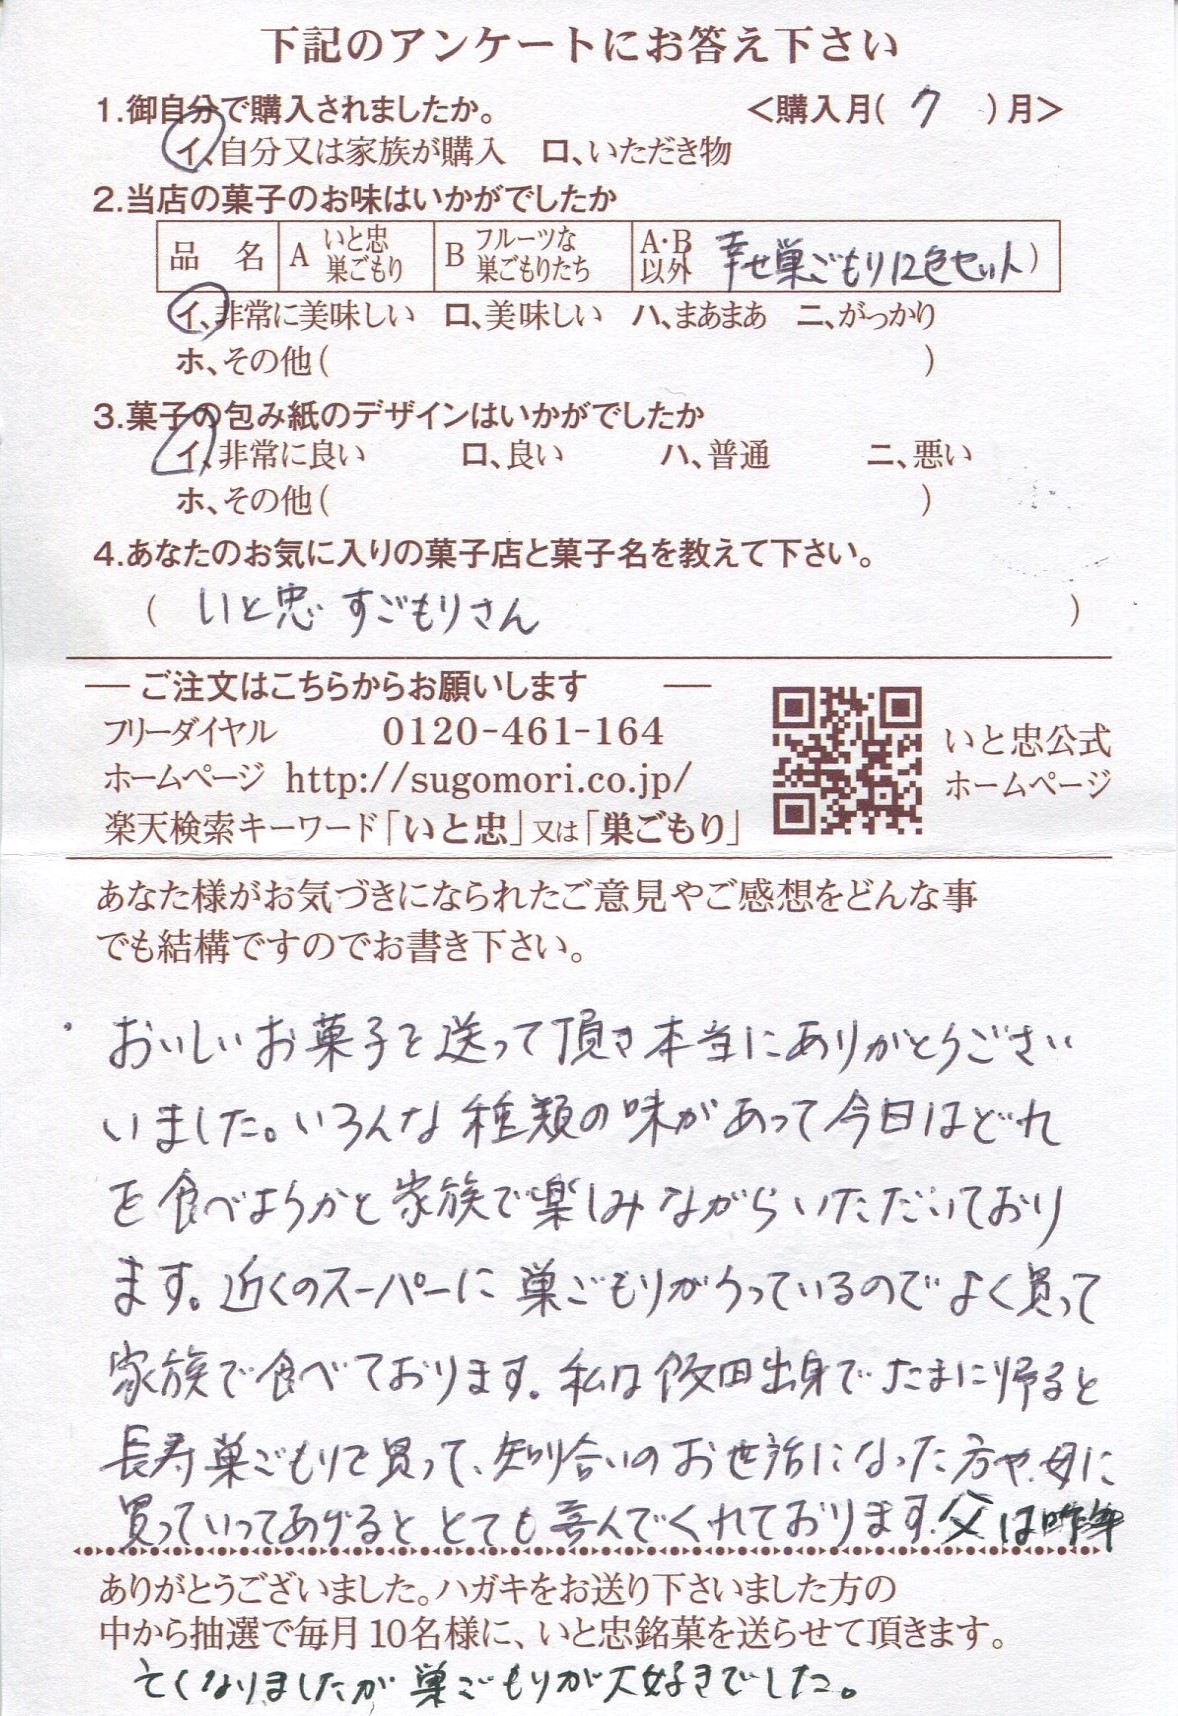 下記のアンケートにお答え下さい
1.御自分で購入されましたか。 <購入月( 7 )月>
イ、自分又は家族が購入 ロ、いただき物
2.当店の菓子のお味はいかがでしたか
品 名 A いと忠 巣ごもり B フルーツな 巣ごもりたち A・B 以外 幸せ巣ごもり12色セット)
イ、非常に美味しい ロ、美味しい ハ、まあまあ ニ、がっかり
ホ、その他( )
3.菓子の包み紙のデザインはいかがでしたか
イ、非常に良い ロ、良い ハ、普通 ニ、悪い
ホ、その他( )
4.あなたのお気に入りの菓子店と菓子名を教えて下さい。
( いと忠 すごもりさん )
― ご注文はこちらからお願いします ―
フリーダイヤル 0120-461-164
ホームページ http://sugomori.co.jp/
楽天検索キーワード「いと忠」又は「巣ごもり」
いと忠公式
ホームページ
あなた様がお気づきになられたご意見やご感想をどんな事
でも結構ですのでお書き下さい。
・おいしいお菓子を送って頂き本当にありがとうござい
いました。いろんな種類の味があって今日はどれ
を食べようかと家族で楽しみながらいただいており
ます。近くのスーパーに巣ごもりがうっているのでよく買って
家族で食べております。私は飯田出身でたまに帰ると
長寿巣ごもりを買って、知り合いのお世話になった方や、母に
買っていってあげるととても喜んでくれております。父は昨年
ありがとうございました。ハガキをお送り下さいました方の
中から抽選で毎月10名様に、いと忠銘菓を送らせて頂きます。
亡くなりましたが巣ごもりが大好きでした。